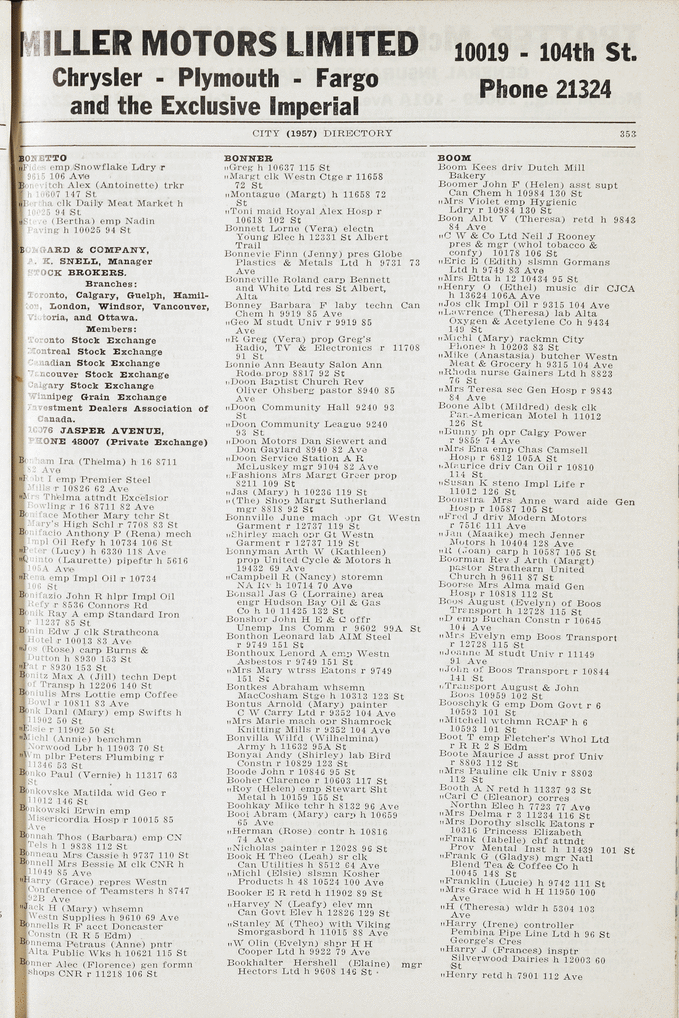 MILLER MOTORS LIMITED
Chrysler - Plymouth - Fargo
and the Exclusive Imperial
10019 - 104th St.
Phone 21324
CITY (1957) DIRECTORY 353
BONETTO
"Fides emp Snowflake Ldry r
9615 106 Ave
Bonevitch Alex (Antoinette) trkr
h 10607 147 St
"Bertha clk Daily Meat Market h
10025 94 St
"Steve (Bertha) emp Nadin
Paving h 10025 94 St
BONGARD & COMPANY,
A. K. SNELL, Manager
STOCK BROKERS.
Branches:
Toronto, Calgary, Guelph, Hamil-
ton, London, Windsor, Vancouver,
Victoria, and Ottawa.
Members:
Toronto Stock Exchange
Montreal Stock Exchange
Canadian Stock Exchange
Vancouver Stock Exchange
Calgary Stock Exchange
Winnipeg Grain Exchange
Investment Dealers Association of
Canada.
10076 JASPER AVENUE,
PHONE 48007 (Private Exchange)
Bonham Ira (Thelma) h 16 8711
82 Ave
"Robt I emp Premier Steel
Mills r 10826 62 Ave
"Mrs Thelma attndt Excelsior
Bowling r 16 8711 82 Ave
Boniface Mother Mary tchr St
Mary's High Schl r 7708 83 St
Bonifacio Anthony P (Rena) mech
Impl Oil Refy h 10734 106 St
"Peter (Lucy) h 6330 118 Ave
"Quinto (Laurette) pipeftr h 5616
105A Ave
"Rena emp Impl Oil r 10734
106 St
Bonifazio John R hlpr Impl Oil
Refy r 8536 Connors Rd
Bonik Ray A emp Standard Iron
r 11237 85 St
Bonin Edw J clk Strathcona
Hotel r 10013 83 Ave
"Jos (Rose) carp Burns &
Dutton h 8930 153 St
"Pat r 8930 153 St
Bonitz Max A (Jill) techn Dept
of Transp h 12206 140 St
Boniulis Mrs Lottie emp Coffee
Bowl r 10811 83 Ave
Bonk Danl (Mary) emp Swifts h
11902 50 St
"Elsie r 11902 50 St
"Michl (Annie) benchmn
Norwood Lbr h 11903 70 St
"Wm plbr Peters Plumbing r
11346 53 St
Bonko Paul (Vernie) h 11317 63
St
Bonkovske Matilda wid Geo r
11012 146 St
Bonkowski Erwin emp
Misericordia Hosp r 10015 85
Ave
Bonnah Thos (Barbara) emp CN
Tels h 1 9838 112 St
Bonneau Mrs Cassie h 9737 110 St
Bonnell Mrs Bessie M clk CNR h
11049 85 Ave
"Harry (Grace) repres Westn
Conference of Teamsters h 8747
92B Ave
"Jack H (Mary) whsemn
Westn Supplies h 9610 69 Ave
Bonnells R F acct Doncaster
Constn (R R 5 Edm)
Bonnema Petraus (Anne) pntr
Alta Public Wks h 10621 115 St
Bonner Alec (Florence) gen formn
shops CNR r 11218 106 St
BONNER
"Greg h 10637 115 St
"Margt clk Westn Ctge r 11658
72 St
"Montague (Margt) h 11658 72
St
"Toni maid Royal Alex Hosp r
10618 102 St
Bonnett Lorne (Vera) electn
Young Elec h 12331 St Albert
Trail
Bonnevie Finn (Jenny) pres Globe
Plastics & Metals Ltd h 9731 73
Ave
Bonneville Roland carp Bennett
and White Ltd res St Albert,
Alta
Bonney Barbara F laby techn Can
Chem h 9919 85 Ave
"Geo M studt Univ r 9919 85
Ave
"R Greg (Vera) prop Greg's
Radio, TV & Electronics r 11708
91 St
Bonnie Ann Beauty Salon Ann
Rodo prop 8817 92 St
"Doon Baptist Church Rev
Oliver Ohsberg pastor 8940 85
Ave
"Doon Community Hall 9240 93
St
"Doon Community League 9240
93 St
"Doon Motors Dan Siewert and
Don Gaylard 8940 82 Ave
"Doon Service Station A R
McLuskey mgr 9104 82 Ave
"Fashions Mrs Margt Greer prop
8211 109 St
"Jas (Mary) h 10236 119 St
"(The) Shop Margt Sutherland
mgr 8818 92 St
Bonnville June mach opr Gt Westn
Garment r 12737 119 St
"Shirley mach opr Gt Westn
Garment r 12737 119 St
Bonnyman Arth W (Kathleen)
prop United Cycle & Motors h
19432 69 Ave
"Campbell R (Nancy) storemn
NA Ry h 10714 70 Ave
Bonsall Jas G (Lorraine) area
engr Hudson Bay Oil & Gas
Co h 10 11425 132 St
Bonshor John H E & C offr
Unemp Ins Comm r 9602 99A St
Bonthon Leonard lab AIM Steel
r 9749 151 St
Bonthoux Lenord A emp Westn
Asbestos r 9749 151 St
"Mrs Mary wtrss Eatons r 9749
151 St
Bontkes Abraham whsemn
MacCosham Stge h 10313 123 St
Bontus Arnold (Mary) painter
C W Carry Ltd r 9352 104 Ave
"Mrs Marie mach opr Shamrock
Knitting Mills r 9352 104 Ave
Bonvilla Wilfd (Wilhelmina)
Army h 11632 95A St
Bonyai Andy (Shirley) lab Bird
Constn r 10829 123 St
Boode John r 10846 95 St
Booher Clarence r 10603 117 St
"Roy (Helen) emp Stewart Sht
Metal h 10159 155 St
Boohkay Mike tchr h 8132 96 Ave
Booi Abram (Mary) carp h 10659
65 Ave
"Herman (Rose) contr h 10816
74 Ave
"Nicholas painter r 12028 96 St
Book H Theo (Leah) sr clk
Can Utilities h 8512 64 Ave
"Michl (Elsie) slsmn Kosher
Products h 48 10524 100 Ave
Booker E R retd h 11902 89 St
"Harvey N (Leafy) elev mn
Can Govt Elev h 12826 129 St
"Stanley M (Theo) with Viking
Smorgasbord h 11015 88 Ave
"W Olin (Evelyn) shpr H H
Cooper Ltd h 9922 79 Ave
Bookhalter Hershell (Elaine) mgr
Hectors Ltd h 9608 146 St
BOOM
Boom Kees driv Dutch Mill
Bakery
Boomer John F (Helen) asst supt
Can Chem h 10984 130 St
"Mrs Violet emp Hygienic
Ldry r 10984 130 St
Boon Albt V (Theresa) retd h 9843
84 Ave
"C W & Co Ltd Neil J Rooney
pres & mgr (whol tobacco &
confy) 10178 106 St
"Eric E (Edith) slsmn Gormans
Ltd h 9749 83 Ave
"Mrs Etta h 12 10434 95 St
"Henry O (Ethel) music dir CJCA
h 13624 106A Ave
"Jos clk Impl Oil r 9315 104 Ave
"Lawrence (Theresa) lab Alta
Oxygen & Acetylene Co h 9434
149 St
"Michl (Mary) rackmn City
Phones h 10203 83 St
"Mike (Anastasia) butcher Westn
Meat & Grocery h 9315 104 Ave
"Rhoda nurse Gainers Ltd h 8823
76 St
"Mrs Teresa sec Gen Hosp r 9843
84 Ave
Boone Albt (Mildred) desk clk
Pan-American Motel h 11012
126 St
"Bunny ph opr Calgy Power
r 9859 74 Ave
"Mrs Ena emp Chas Camsell
Hosp r 6812 105A St
"Maurice driv Can Oil r 10810
114 St
"Susan K steno Impl Life r
11012 126 St
Boonstra Mrs Anne ward aide Gen
Hosp r 10587 105 St
"Fred J driv Modern Motors
r 7516 111 Ave
"Jan (Maaike) mech Jenner
Motors h 10404 128 Ave
"R (Joan) carp h 10587 105 St
Boorman Rev J Arth (Margt)
pastor Strathearn United
Church h 9611 87 St
Boorse Mrs Alma maid Gen
Hosp r 10818 112 St
Boos August (Evelyn) of Boos
Transport h 12728 115 St
"D emp Buchan Constn r 10645
104 Ave
"Mrs Evelyn emp Boos Transport
r 12728 115 St
"Joanne M studt Univ r 11149
91 Ave
"John of Boos Transport r 10844
141 St
"Transport August & John
Boos 10959 102 St
Booschyk G emp Dom Govt r 6
10593 101 St
"Mitchell wtchmn RCAF h 6
10593 101 St
Boot T emp Fletcher's Whol Ltd
r R R 2 S Edm
Boote Maurice J asst prof Univ
r 8803 112 St
"Mrs Pauline clk Univ r 8803
112 St
Booth A N retd h 11337 93 St
"Carl C (Eleanor) corres
Northn Elec h 7723 77 Ave
"Mrs Delma r 3 11234 116 St
"Mrs Dorothy slsclk Eatons r
10316 Princess Elizabeth
"Frank (Isabelle) chf attndt
Prov Mental Inst h 11439 101 St
"Frank G (Gladys) mgr Natl
Blend Tea & Coffee Co h
10045 148 St
"Franklin (Lucie) h 9742 111 St
"Mrs Grace wid h H 11950 100
Ave
"H (Theresa) wldr h 5304 103
Ave
"Harry (Irene) controller
Pembina Pipe Line Ltd h 96 St
George's Cres
"Harry J (Frances) insptr
Silverwood Dairies h 12003 60
St
"Henry retd h 7901 112 Ave